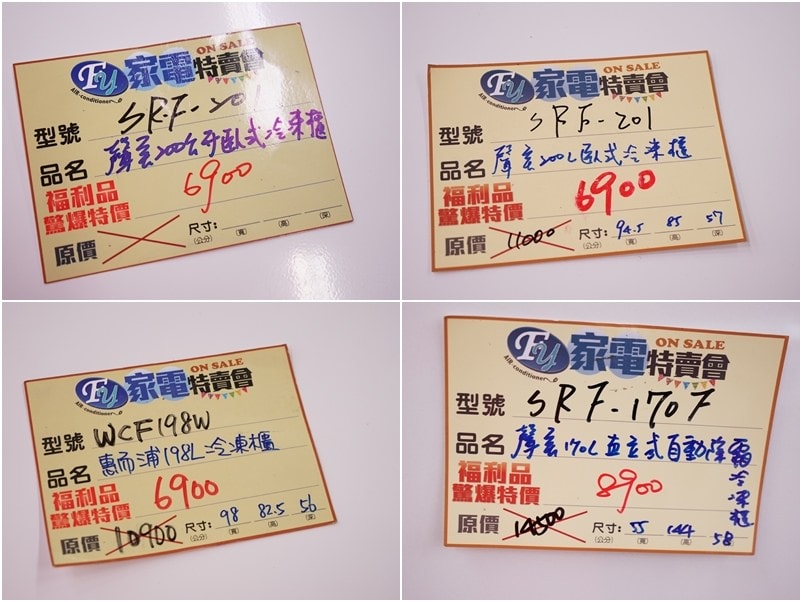 FU 家電特賣會 ON SALE
AIR-conditioner
型號 SRF-201
品名 聲寶200公升臥式冷凍櫃
福利品
驚爆特價 6900
原價 尺寸:
(公分) (寬) (高) (深)
FU 家電特賣會 ON SALE
AIR-conditioner
型號 SRF-201
品名 聲寶200L臥式冷凍櫃
福利品
驚爆特價 6900
原價 11000 尺寸: 94.5 85 57
(公分) (寬) (高) (深)
FU 家電特賣會 ON SALE
AIR-conditioner
型號 WCF198W
品名 惠而浦198L冷凍櫃
福利品
驚爆特價 6900
原價 10900 尺寸: 98 82.5 56
(公分) (寬) (高) (深)
FU 家電特賣會 ON SALE
AIR-conditioner
型號 SRF-170F
品名 聲寶170L直立式自動除霜冷凍櫃
福利品
驚爆特價 8900
原價 14500 尺寸: 55 144 58
(公分) (寬) (高) (深)